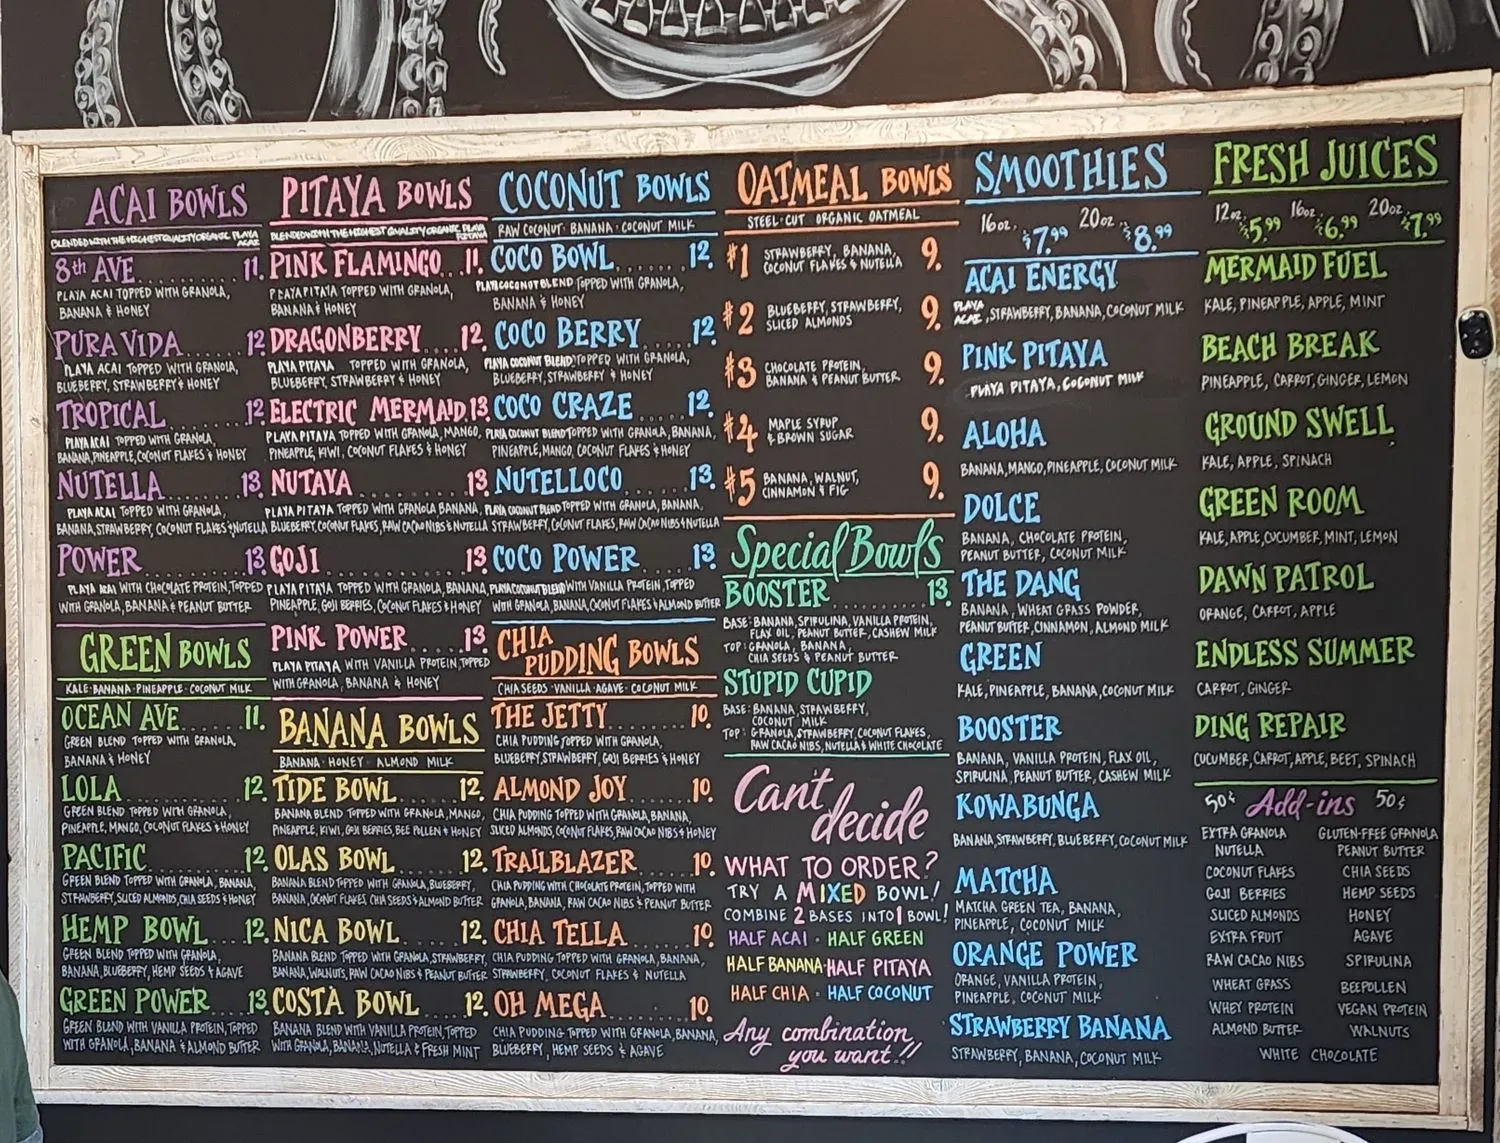 ACAI BOWLS
BLENDED WITH THE HIGHEST QUALITY ORGANIC PLAYA
ACAI
8th AVE 11.
PLAYA ACAI TOPPED WITH GRANOLA,
BANANA & HONEY
PURA VIDA...... 12.
PLAYA ACAI TOPPED WITH GRANOLA,
BLUEBERRY, STRAWBERRY & HONEY
TROPICAL....... 12
PLAYA ACAI TOPPED WITH GRANOLA,
BANANA, PINEAPPLE, COCONUT FLAKES & HONEY
NUTELLA....... 13.
PLAYA ACAI TOPPED WITH GRANOLA,
BANANA, STRAWBERRY, COCONUT FLAKES & NUTELLA
POWER......... 13.
PLAYA ACAI WITH CHOCOLATE PROTEIN, TOPPED
WITH GRANOLA, BANANA & PEANUT BUTTER
GREEN BOWLS
KALE · BANANA · PINEAPPLE · COCONUT MILK
OCEAN AVE..... 11.
GREEN BLEND TOPPED WITH GRANOLA,
BANANA & HONEY
LOLA.......... 12.
GREEN BLEND TOPPED WITH GRANOLA,
PINEAPPLE, MANGO, COCONUT FLAKES & HONEY
PACIFIC........ 12.
GREEN BLEND TOPPED WITH GRANOLA, BANANA,
STRAWBERRY, SLICED ALMONDS, CHIA SEEDS & HONEY
HEMP BOWL... 12.
GREEN BLEND TOPPED WITH GRANOLA,
BANANA, BLUEBERRY, HEMP SEEDS & AGAVE
GREEN POWER... 13
GREEN BLEND WITH VANILLA PROTEIN, TOPPED
WITH GRANOLA, BANANA & ALMOND BUTTER
PITAYA BOWLS
BLENDED WITH THE HIGHEST QUALITY ORGANIC PLAYA
PITAYA
PINK FLAMINGO... 11.
PLAYA PITAYA TOPPED WITH GRANOLA,
BANANA & HONEY
DRAGONBERRY.... 12.
PLAYA PITAYA TOPPED WITH GRANOLA,
BLUEBERRY, STRAWBERRY & HONEY
ELECTRIC MERMAID 13.
PLAYA PITAYA TOPPED WITH GRANOLA, MANGO,
PINEAPPLE, KIWI, COCONUT FLAKES & HONEY
NUTAYA.......... 13.
PLAYA PITAYA TOPPED WITH GRANOLA, BANANA,
BLUEBERRY, COCONUT FLAKES, RAW CACAO NIBS & NUTELLA
GOJI............ 13.
PLAYA PITAYA TOPPED WITH GRANOLA, BANANA,
PINEAPPLE, GOJI BERRIES, COCONUT FLAKES & HONEY
PINK POWER..... 13.
PLAYA PITAYA WITH VANILLA PROTEIN, TOPPED
WITH GRANOLA, BANANA & HONEY
BANANA BOWLS
BANANA · HONEY · ALMOND MILK
TIDE BOWL...... 12.
BANANA BLEND TOPPED WITH GRANOLA, MANGO,
PINEAPPLE, KIWI, GOJI BERRIES, BEE POLLEN & HONEY
OLAS BOWL...... 12.
BANANA BLEND TOPPED WITH GRANOLA, BLUEBERRY,
BANANA, COCONUT FLAKES CHIA SEEDS & ALMOND BUTTER
NICA BOWL...... 12.
BANANA BLEND TOPPED WITH GRANOLA, STRAWBERRY,
BANANA, WALNUTS, RAW CACAO NIBS & PEANUT BUTTER
COSTA BOWL.... 12.
BANANA BLEND WITH VANILLA PROTEIN, TOPPED
WITH GRANOLA, BANANA, NUTELLA & FRESH MINT
COCONUT BOWLS
RAW COCONUT · BANANA · COCONUT MILK
COCO BOWL...... 12.
PLAYA COCONUT BLEND TOPPED WITH GRANOLA,
BANANA & HONEY
COCO BERRY.... 12.
PLAYA COCONUT BLEND TOPPED WITH GRANOLA,
BLUEBERRY, STRAWBERRY & HONEY
COCO CRAZE..... 12.
PLAYA COCONUT BLEND TOPPED WITH GRANOLA, BANANA,
PINEAPPLE, MANGO, COCONUT FLAKES & HONEY
NUTELLOCO...... 13.
PLAYA COCONUT BLEND TOPPED WITH GRANOLA, BANANA,
STRAWBERRY, COCONUT FLAKES, RAW CACAO NIBS & NUTELLA
COCO POWER.... 13.
PLAYA COCONUT BLEND WITH VANILLA PROTEIN, TOPPED
WITH GRANOLA, BANANA, COCONUT FLAKES & ALMOND BUTTER
CHIA
PUDDING BOWLS
CHIA SEEDS · VANILLA · AGAVE · COCONUT MILK
THE JETTY....... 10.
CHIA PUDDING TOPPED WITH GRANOLA,
BLUEBERRY, STRAWBERRY, GOJI BERRIES & HONEY
ALMOND JOY..... 10.
CHIA PUDDING TOPPED WITH GRANOLA, BANANA,
SLICED ALMONDS, COCONUT FLAKES, RAW CACAO NIBS & HONEY
TRAILBLAZER.... 10.
CHIA PUDDING WITH CHOCOLATE PROTEIN, TOPPED WITH
GRANOLA, BANANA, RAW CACAO NIBS & PEANUT BUTTER
CHIA TELLA..... 10.
CHIA PUDDING TOPPED WITH GRANOLA, BANANA,
STRAWBERRY, COCONUT FLAKES & NUTELLA
OH MEGA........ 10.
CHIA PUDDING TOPPED WITH GRANOLA, BANANA,
BLUEBERRY, HEMP SEEDS & AGAVE
OATMEAL BOWLS
STEEL-CUT ORGANIC OATMEAL
#1 STRAWBERRY, BANANA, 9.
COCONUT FLAKES & NUTELLA
#2 BLUEBERRY, STRAWBERRY, 9.
SLICED ALMONDS
#3 CHOCOLATE PROTEIN, 9.
BANANA & PEANUT BUTTER
#4 MAPLE SYRUP 9.
& BROWN SUGAR
#5 BANANA, WALNUT, 9.
CINNAMON & FIG
Special Bowls
BOOSTER.......... 13.
BASE: BANANA, SPIRULINA, VANILLA PROTEIN,
FLAX OIL, PEANUT BUTTER, CASHEW MILK
TOP: GRANOLA, BANANA,
CHIA SEEDS & PEANUT BUTTER
STUPID CUPID
BASE: BANANA, STRAWBERRY,
COCONUT MILK
TOP: GRANOLA, STRAWBERRY, COCONUT FLAKES,
RAW CACAO NIBS, NUTELLA & WHITE CHOCOLATE
Can't
decide
WHAT TO ORDER?
TRY A MIXED BOWL!
COMBINE 2 BASES INTO 1 BOWL!
HALF ACAI · HALF GREEN
HALF BANANA · HALF PITAYA
HALF CHIA · HALF COCONUT
Any combination
you want!!
SMOOTHIES
16oz. $7.99 20oz. $8.99
ACAI ENERGY
PLAYA
ACAI, STRAWBERRY, BANANA, COCONUT MILK
PINK PITAYA
PLAYA PITAYA, COCONUT MILK
ALOHA
BANANA, MANGO, PINEAPPLE, COCONUT MILK
DOLCE
BANANA, CHOCOLATE PROTEIN,
PEANUT BUTTER, COCONUT MILK
THE DANG
BANANA, WHEAT GRASS POWDER,
PEANUT BUTTER, CINNAMON, ALMOND MILK
GREEN
KALE, PINEAPPLE, BANANA, COCONUT MILK
BOOSTER
BANANA, VANILLA PROTEIN, FLAX OIL,
SPIRULINA, PEANUT BUTTER, CASHEW MILK
KOWABUNGA
BANANA, STRAWBERRY, BLUEBERRY, COCONUT MILK
MATCHA
MATCHA GREEN TEA, BANANA,
PINEAPPLE, COCONUT MILK
ORANGE POWER
ORANGE, VANILLA PROTEIN,
PINEAPPLE, COCONUT MILK
STRAWBERRY BANANA
STRAWBERRY, BANANA, COCONUT MILK
FRESH JUICES
12oz. $5.99 16oz. $6.99 20oz. $7.99
MERMAID FUEL
KALE, PINEAPPLE, APPLE, MINT
BEACH BREAK
PINEAPPLE, CARROT, GINGER, LEMON
GROUND SWELL
KALE, APPLE, SPINACH
GREEN ROOM
KALE, APPLE, CUCUMBER, MINT, LEMON
DAWN PATROL
ORANGE, CARROT, APPLE
ENDLESS SUMMER
CARROT, GINGER
DING REPAIR
CUCUMBER, CARROT, APPLE, BEET, SPINACH
50¢ Add-ins 50¢
EXTRA GRANOLA GLUTEN-FREE GRANOLA
NUTELLA PEANUT BUTTER
COCONUT FLAKES CHIA SEEDS
GOJI BERRIES HEMP SEEDS
SLICED ALMONDS HONEY
EXTRA FRUIT AGAVE
RAW CACAO NIBS SPIRULINA
WHEAT GRASS BEEPOLLEN
WHEY PROTEIN VEGAN PROTEIN
ALMOND BUTTER WALNUTS
WHITE CHOCOLATE